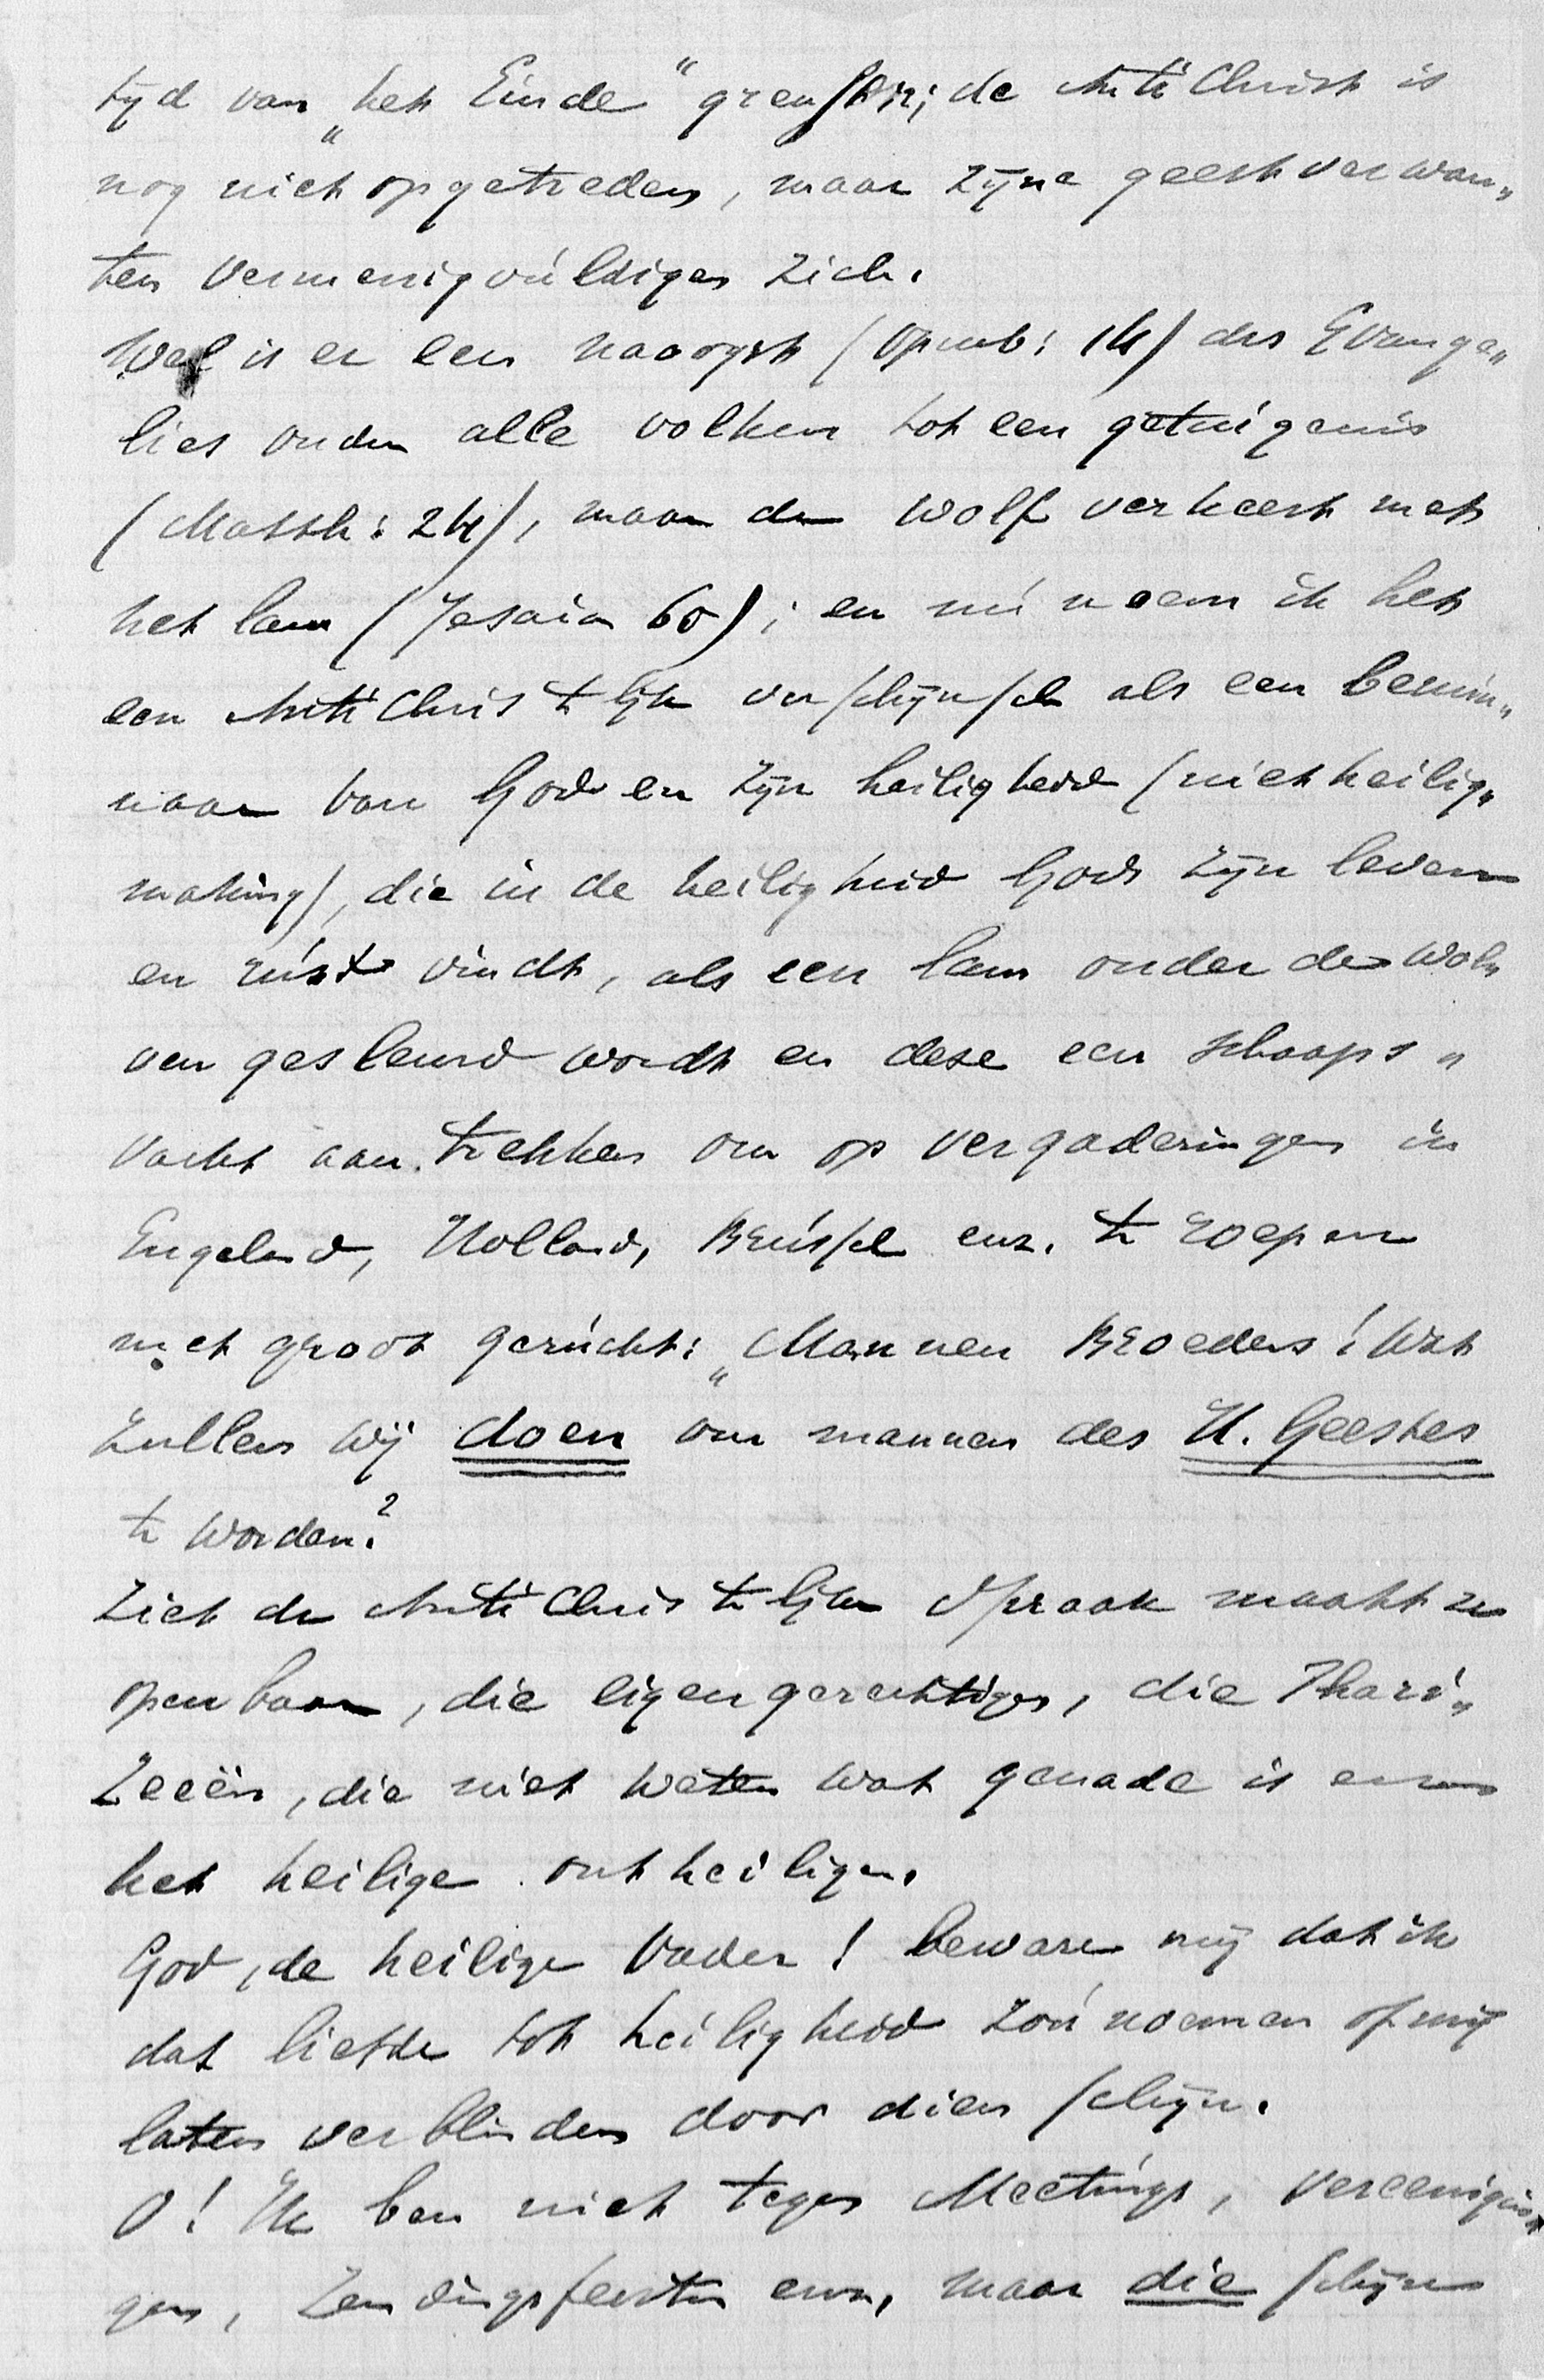 tijd van „het Einde“ grenzen; de AntiChrist is
nog niet opgetreden, maar zijne geestverwan„
ten vermenigvúldigen zich.
Wel is er een naoogst (Openb: 14) des Evange„
lies onder alle volken tot een getuigenis
(Matth: 24), maar de wolf verkeert met
het lam (Jesaia 65); en nú noem ik het
een AntiChristelijk verschijnsel als een bemin„
naar van God en zijn heiligheid (niet heilig„
making), die in de heiligheid Gods zijn leven
en rúst vindt, als een lam onder de wol„
ven gesleurd wordt en deze een schaaps„
vacht aan trekken om op vergaderingen in
Engeland, Holland, Brússel enz. te roepen
met groot gerúcht: „Mannen Broeders! Wat
zullen wij doen om mannen des H. Geestes
te worden?
Ziet de AntiChristelijke spraak maakt ze
openbaar, die eigengerechtigen, die Phari„
zeeën, die niet weten wat genade is en
het heilige ontheiligen.
God, de heilige Vader! beware mij dat ik
dat liefde tot heiligheid zoú noemen of mij
laten verblinden door dien schijn.
O! Ik ben niet tegen Meetings, vereenigin„
gen, Zendingsfeesten enz, maar die schijn